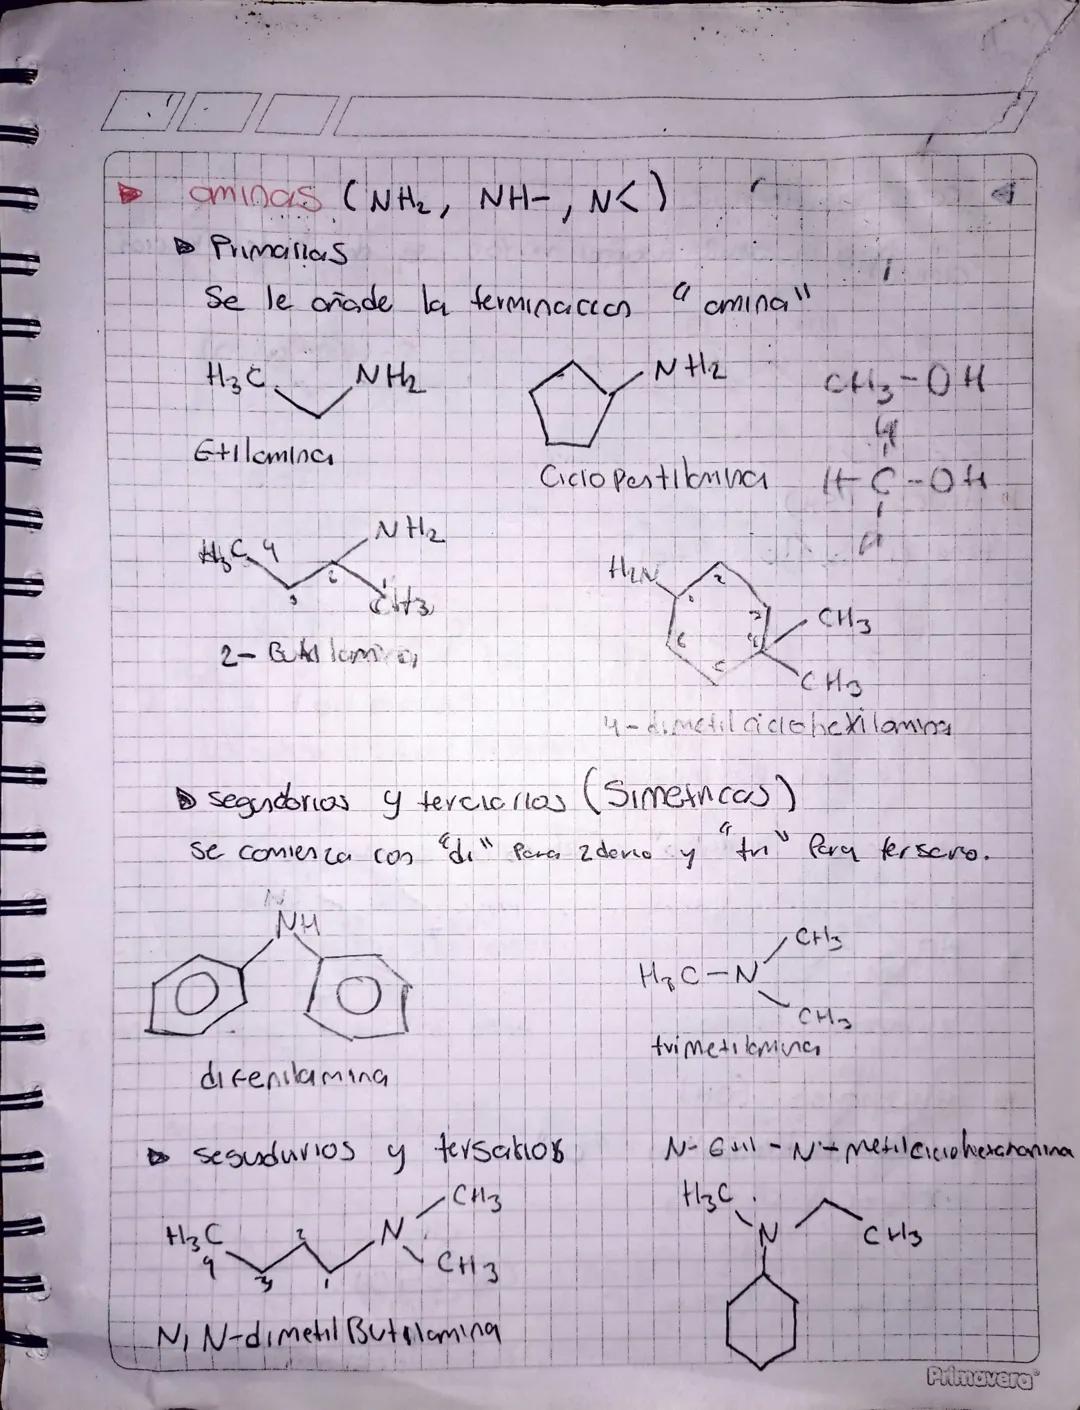 aminas (NH₂, NH-, N<)
Primarias
Se le añade la terminacion "amina"
H₃C NH₂
NH₂
CH₃-OH
Etilamina
Ciclopentilamina
H
H-C-OH
H
H₃C 4 3 2 1 NH₂ CH₃
2-Butilamina
H₂N 1 2 3 4 5 6 CH₃ CH₃
4-dimetilciclohexilamina
segundarias y terciarios (Simetricas)
se comienza con "di" Para 2dario y "tri" Para tersero.
N
NH
H₃C-N CH₃ CH₃
difenilamina
trimetilamina
segudurios y tersarios
H₃C 4 3 2 1 N CH₃ CH₃
N, N-dimetil Butilamina
N-Etil-N-metilciclohexanamina
H₃C N CH₃
Primavera